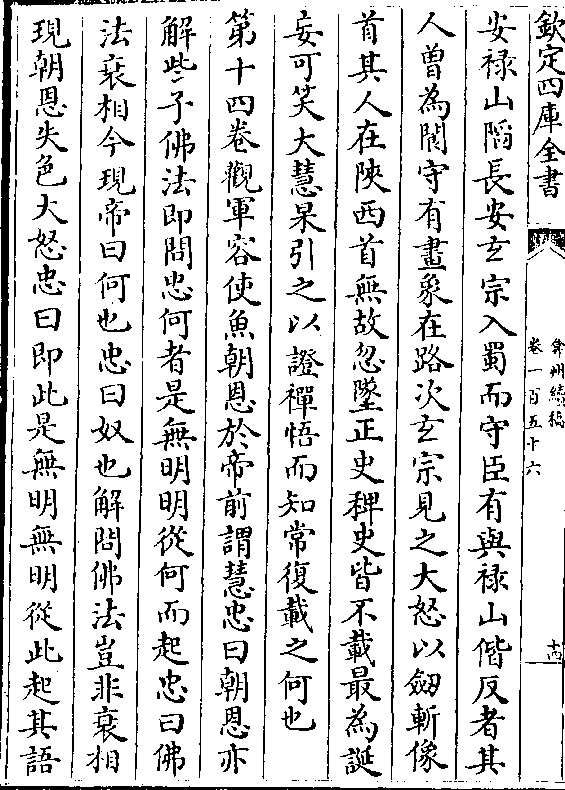 欽定四庫全書
弇州續稿
卷一百五十六
十四
安禄山陷長安玄宗入蜀而守臣有與禄山偕反者其
人曽為閬守有畫象在路次玄宗見之大怒以劒斬像
首其人在陜西首無故忽墜正史稗史皆不載最為誕
妄可笑大慧杲引之以證禪悟而知常復載之何也
第十四卷觀軍容使魚朝恩於帝前謂慧忠曰朝恩亦
解些子佛法即問忠何者是無明明從何而起忠曰佛
法衰相今現帝曰何也忠曰奴也解問佛法豈非衰相
現朝恩失色大怒忠曰即此是無明無明從此起其語